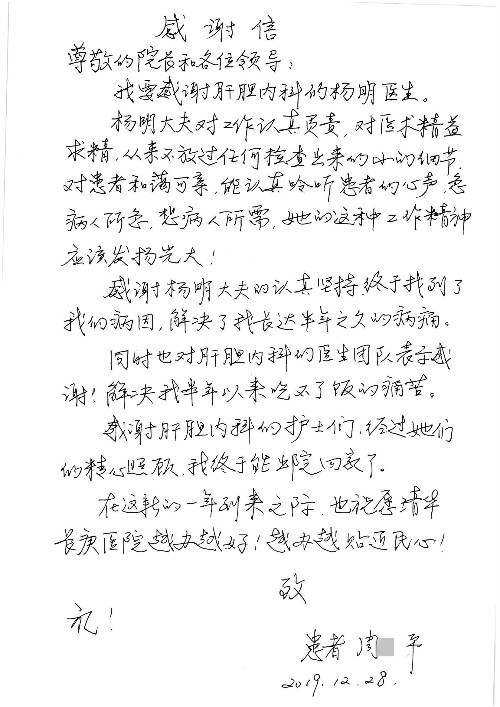 感谢信
尊敬的院长和各位领导：
我要感谢肝胆内科的杨明医生。
杨明大夫对工作认真负责，对医求精益
求精，从来不放过任何检查出来的小的细节，
对患者和蔼可亲，能认真呤听患者的心声，急
病人所急，想病人所需，她的这种工作精神
应该发扬光大！
感谢杨明大夫的认真坚持，终于找到了
我的病因，解决了我长达半年之久的病痛。
同时也对肝胆内科的医生团队表示感
谢！解决我半年以来吃不了饭的痛苦。
感谢肝胆内科的护士们，经过她们
的精心照顾，我终于能出院回家了。
在这新的一年到来之际，也祝愿清华
长庚医院越办越好！越办越贴近民心！
致
礼！
患者 周 平
2019.12.28.